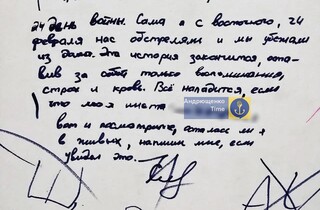 24 день войны. Сама я с восточного, 24
февраля нас обстреляли и мы убежали
из дома. Эта история закончится, оста-
вив за собой только воспоминания,
страх и кровь. Всё наладится, если
что моя инста
Андрющенко
Time
вот и посмотрите, осталась ли я
в живых, напиши мне, если
увидел это.